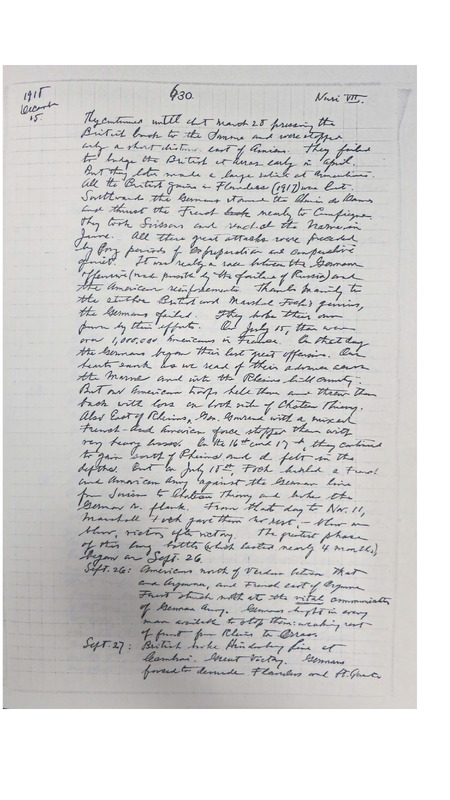 1918
December
15.
630.
Nusi VII.
They continued until abt March 28 pressing the
British back to the Somme and were stopped
only a short distance east of Amiens. They failed
to budge the British at Arras early in April.
But they later made a large salient at Armentieres.
All the British gains in Flanders (1917) was lost.
Southward the Germans stormed the Chemin des Dames
and thrust the French back nearly to Compiegne.
They took Soissons and reached the Marne in
June. All these great attacks were preceded
by long periods for preparation and comparative
quiet. It was really a race between the German
offensive (made possible by the failure of Russia) and
the American reinforcements. Thanks mainly to
the stubborn British and Marshal Foch's genius,
the Germans failed. They broke their own
power by their efforts. On July 15, there were
over 1,000,000 Americans in France. On that day
the Germans began their last great offensive. Our
hearts sank as we read of their advance across
the Marne and into the Rheims hill country.
But our American troops held them and threw them
back with loss on both sides of Chateau Thierry.
Also East of Rheims, Gen. Gouraud with a mixed
French and American force stopped them with
very heavy losses. On the 16th and 17th, they continued
to gain south of Rheims and I felt in the
depths. But on July 18th, Foch hurled a French
and American Army against the German line
from Soissons to Chateau Thierry and broke the
German r. flank. From that day to Nov. 11,
Marshall Foch gave them no rest, - blow on
blow, victory after victory. The greatest phase
of this long battle (which lasted nearly 4 months)
began on Sept. 26.
Sept. 26: Americans north of Verdun between that
and Argonne, and French east of Argonne
Forest struck north at the vital communications
of German Army. Germans brought in every
man available to stop them: weakening rest
of front from Rheims to Arras.
Sept. 27: British broke Hindenburg line at
Cambrai. Great Victory. Germans
forced to denude Flanders and St. Quentin